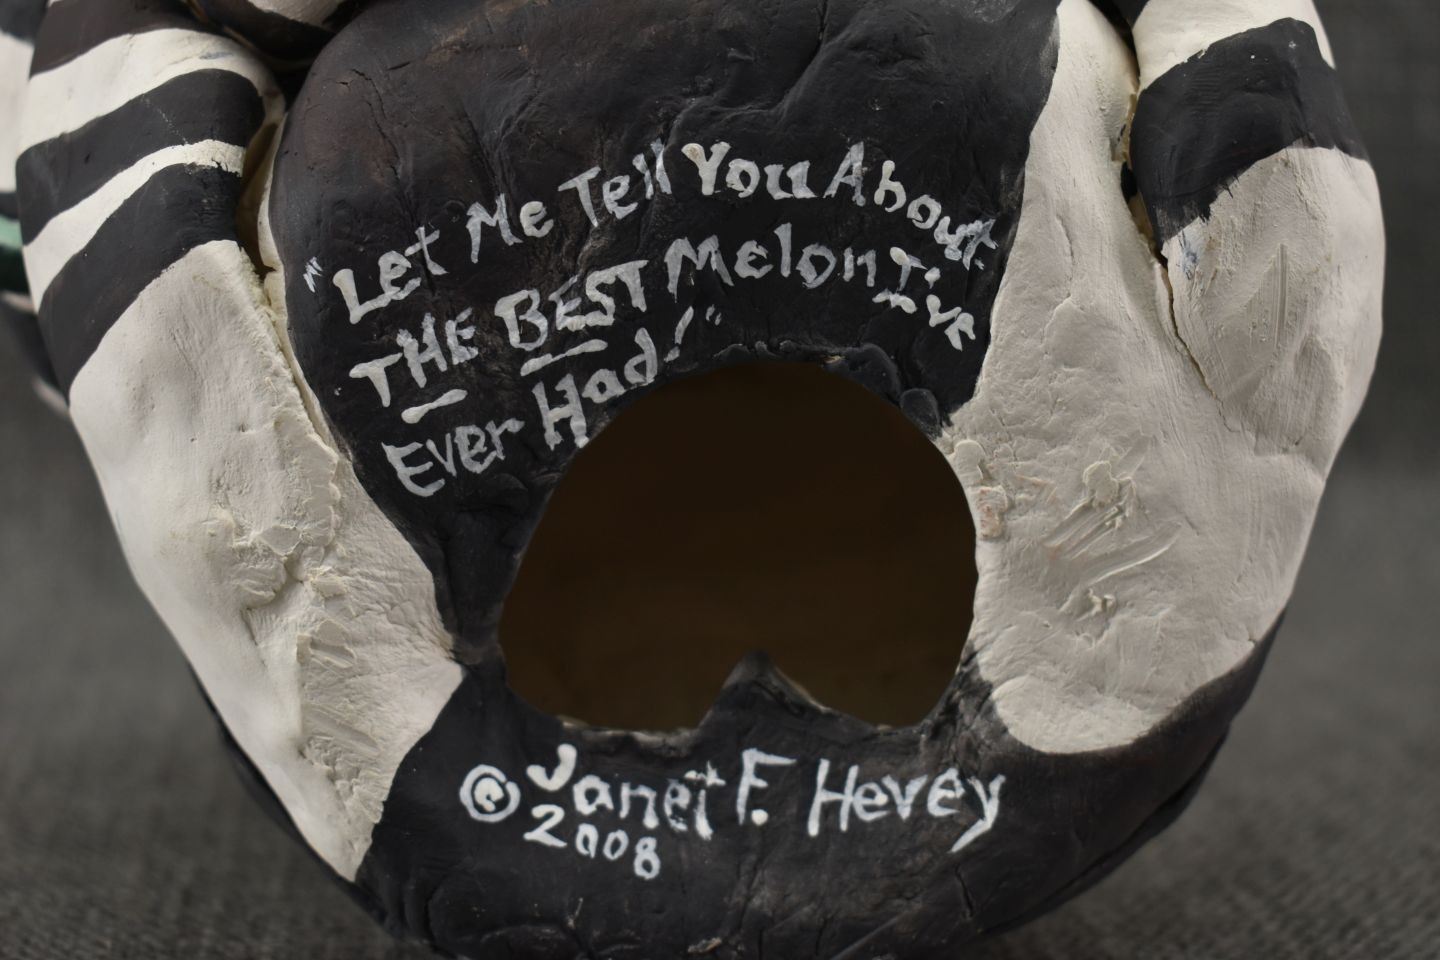 "Let Me Tell You About
THE BEST Melon I've
Ever Had!"
© Janet F. Hevey
2008